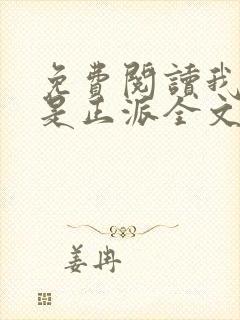 免費閱讀我
是正派全文
姜冉